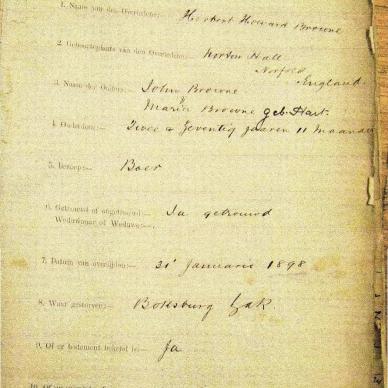 1. Naam van den Overledene:— Herbert Howard Browne
2. Geboorteplaats van den Overledene:— Norton Hall
Norfolk
England
3. Namen der Ouders:— John Browne
&
Maria Browne geb. Hart.
4. Ouderdom:— Twee & Zeventig jaaren 11 maanden
5. Beroep:— Boer
6. Getrouwd of ongetrouwd Ja getrouwd
Weduwnaar of Weduwe:—
7. Datum van overlijden:— 31' Januarie 1898
8. Waar gestorven:— Boksburg ZAR
9. Of er testament bekend is:— Ja
10. Of er